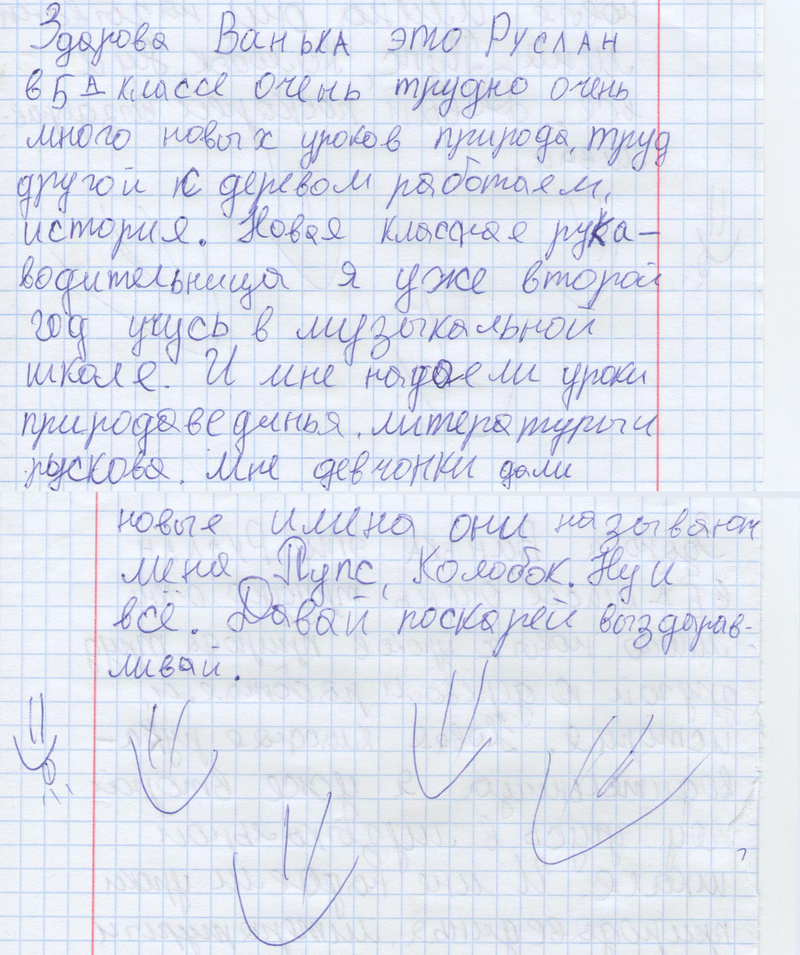 Здарова Ванька это Руслан
в 5 А классе очень трудно очень
много новых уроков природа, труд
другой с деревом работаем,
история. Новая классная рука-
водительницы я уже второй
год учусь в музыкальной
школе. И мне надоели уроки
природаведенья, литературы и
рускова. Мне девчонки дали
новые имена они называют
меня Пупс, Колобок. Ну и
всё. Давай поскарей выздорав-
ливай.